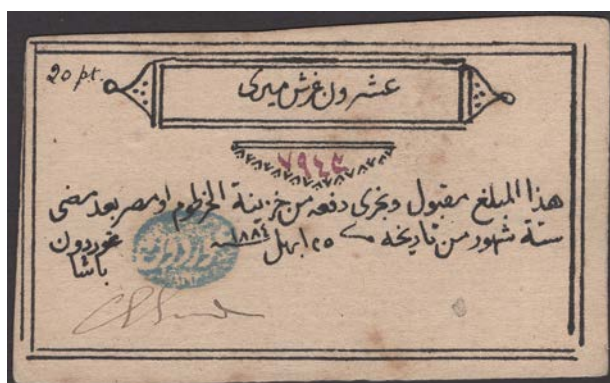 20 pt.
عشرون غرش ميرى
٧٩٤٤
هذا المبلغ مقبول ويجرى دفعه من خزينة الخرطوم او مصر بعد مضى
ستة شهور من تاريخه ٢٥ ابريل ١٨٨٤ غوردون
باشا